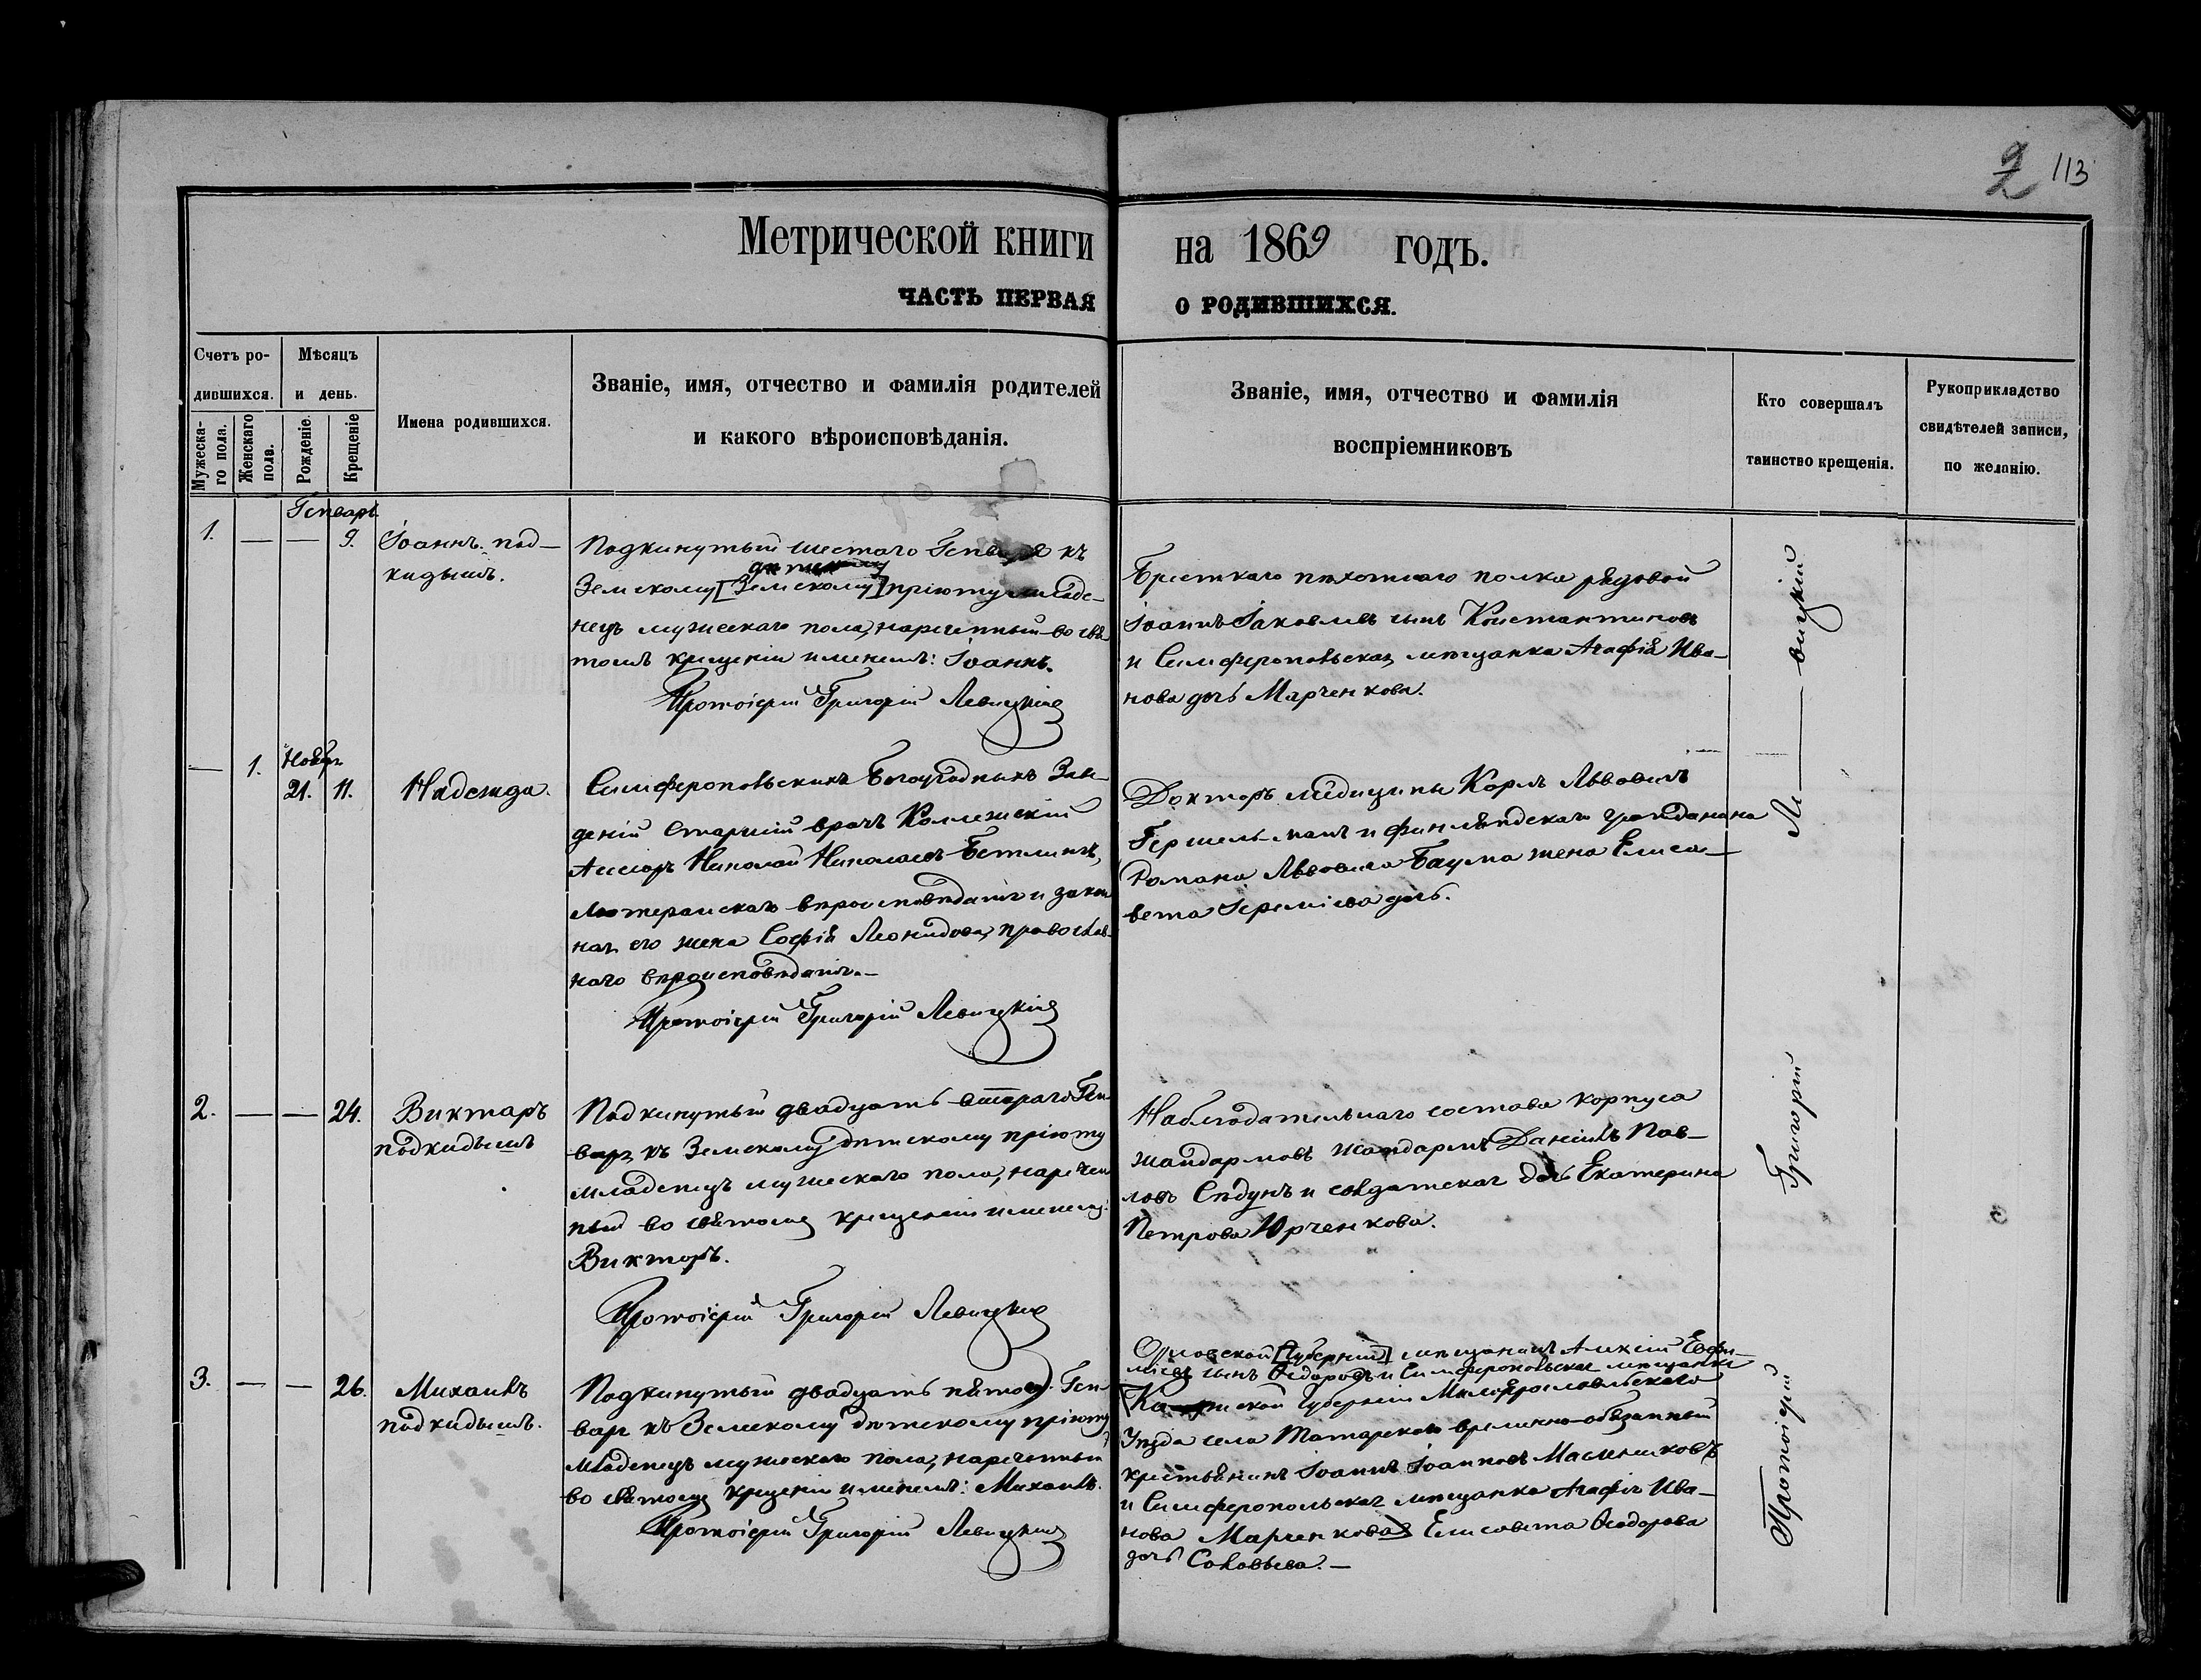 2 113
Метрической книги на 1869 годъ.
ЧАСТЬ ПЕРВАЯ О РОДИВШИХСЯ.
Счетъ ро-
дившихся.
Мужеска-
го пола.
Женскаго
пола.
Мѣсяцъ
и день.
Рожденіе.
Крещеніе
Имена родившихся.
Званіе, имя, отчество и фамилія родителей
и какого вѣроисповѣданія.
Званіе, имя, отчество и фамилія
воспріемниковъ
Кто совершалъ
таинство крещенія.
Рукоприкладство
свидѣтелей записи,
по желанію.
Генварь
1. — — 9.
Іоаннъ под-
кидышъ.
Подкинутый шестаго Генваря къ
дѣтскому
Земскому [Земскому] пріюту младе-
нецъ мужескаго пола, нареченный во свя-
томъ крещеніи именемъ: Іоаннъ.
Протоіерей Григорій Левицкій
Брестскаго пѣхотнаго полка рядовой
Іоаннъ Іаковлевъ сынъ Константиновъ
и Симферопольская мѣщанка Агафія Ива-
нова дочь Марченкова.
— 1. Ноябр.
21. 11.
Надежда.
Симферопольскихъ Богоугодныхъ Заве-
деній Старшій врачъ Коллежскій
Ассесоръ Николай Николаевъ Бетлингъ,
Лютеранскаго вѣроисповѣданія и закон
ная его жена Софія Леонидова, православ-
наго вѣроисповѣданія.—
Протоіерей Григорій Левицкій
Докторъ медицины Карлъ Львовичъ
Гершельманъ и финляндскаго гражданина
Романа Львовича Баума жена Елиса-
вета Іереміева дочь.
2. — — 24.
Викторъ
подкидышъ
Подкинутый двадцать втораго Ген
варя къ Земскому дѣтскому пріюту
младенецъ мужескаго пола, наречен
ный во святомъ крещеніи именемъ:
Викторъ.
Протоіерей Григорій Левицкій
Наблюдательнаго состава корпуса
жандармовъ жандармъ Даніилъ Пав-
ловъ Сѣдунъ и солдатская дочь Екатерина
Петрова Юрченкова.
3. — — 26.
Михаилъ
подкидышъ.
Подкинутый двадцать пятого Ген-
варя къ Земскому дѣтскому пріюту
младенецъ мужескаго пола, нареченный
во святомъ крещеніи именемъ: Михаилъ.
Протоіерей Григорій Левицкій
Орловской [Губерніи] мѣщанинъ Алексій Евфи-
міевъ сынъ Ѳедоровъ и Симферопольская мѣщанка
[Ка ской Губерніи Малоярославльскаго
Уѣзда села Татарскаго временно-обязанный
крестьянинъ Іоаннъ Іоанновъ Масленниковъ
и Симферопольская мѣщанка Агафія Ива-
нова Марченкова] Елисавета Ѳеодорова
дочь Соловьева.—
Протоіерей Григорій Ле———вицкій